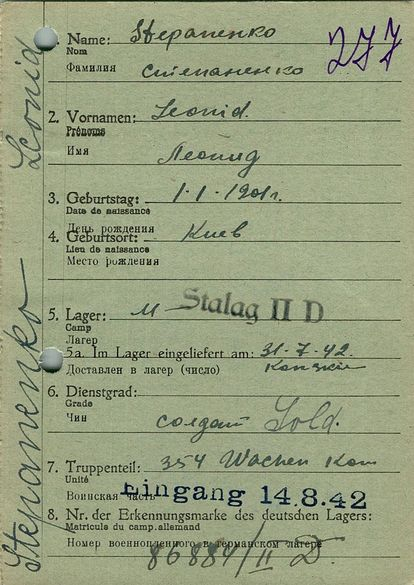 Stepanenko Leonid
277
1. Name: Stepanenko
Nom
Фамилия Степаненко
2. Vornamen: Leonid.
Prénoms
Имя Леонид
3. Geburtstag: 1·1·1901г.
Date de naissance
День рождения
4. Geburtsort: Киев
Lieu de naissance
Место рождения
5. Lager: M Stalag II D
Camp
Лагер
5a. Im Lager eingeliefert am: 31-7-42.
Доставлен в лагер (число)
6. Dienstgrad:
Grade
Чин солдат Sold.
7. Truppenteil: 354 Wachen Kom
Unité
Воинская часть
Eingang 14.8.42
8. Nr. der Erkennungsmarke des deutschen Lagers:
Matricule du camp allemand
Номер военнопленного в германском лагере
86884/II D.